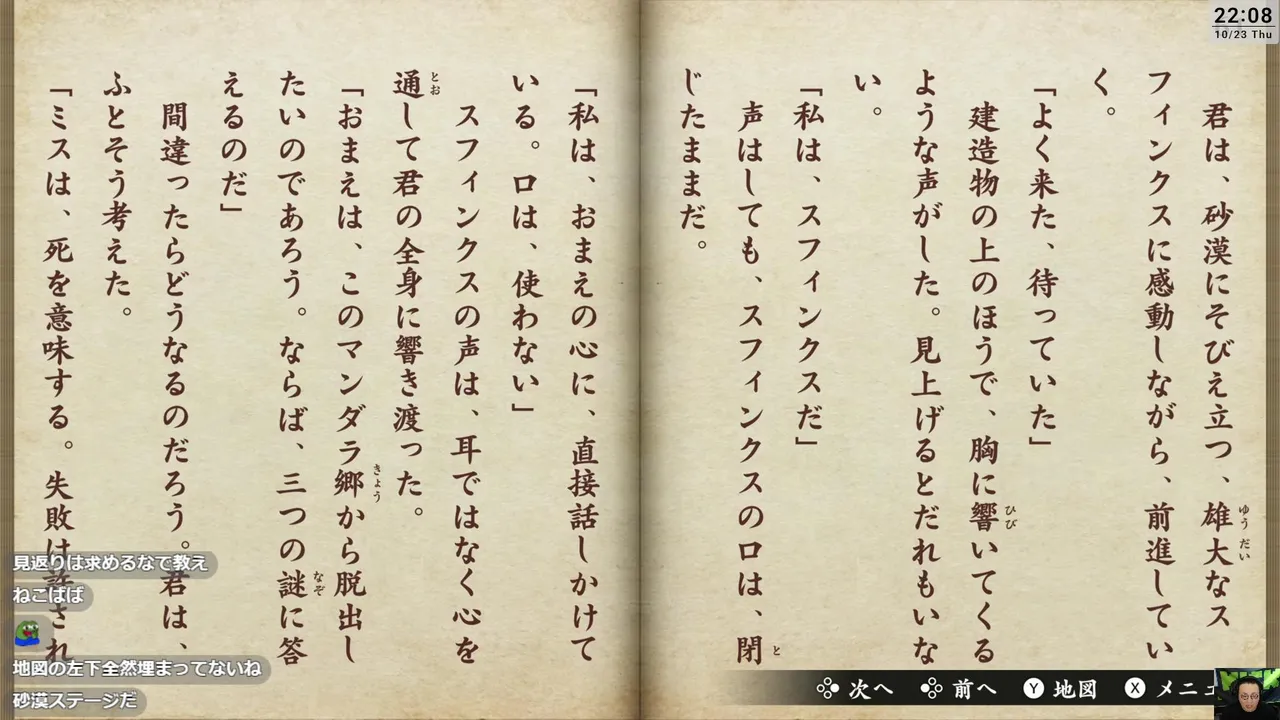 22:08
10/23 Thu
君は、砂漠にそびえ立つ、雄大なス
フィンクスに感動しながら、前進してい
く。
「よく来た、待っていた」
建造物の上のほうで、胸に響いてくる
ような声がした。見上げるとだれもいな
い。
「私は、スフィンクスだ」
声はしても、スフィンクスの口は、閉
じたままだ。
「私は、おまえの心に、直接話しかけて
いる。口は、使わない」
スフィンクスの声は、耳ではなく心を
通して君の全身に響き渡った。
「おまえは、このマンダラ郷から脱出し
たいのであろう。ならば、三つの謎に答
えるのだ」
間違ったらどうなるのだろう。君は、
ふとそう考えた。
「ミスは、死を意味する。失敗は許され
見返りは求めるなて教え
ねこばば
地図の左下全然埋まってないね
砂漠ステージだ
次へ 前へ Y 地図 X メニュ